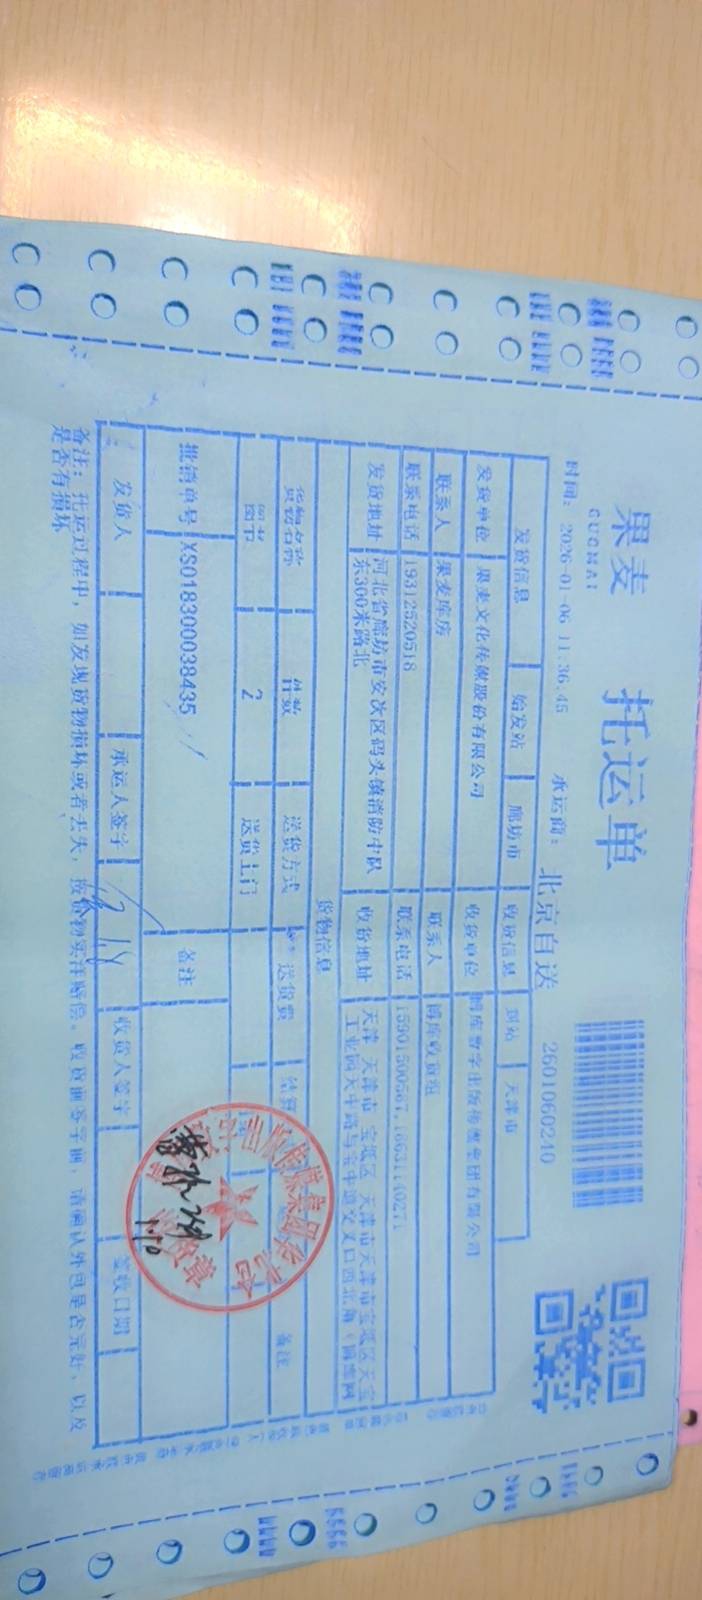 果麦 托运单
GUOMAI
时间: 2026-01-06 11:36:45 承运商: 北京自送 2601060240
发货信息 始发站 廊坊市 收货信息 到站 天津市
发货单位 果麦文化传媒股份有限公司 收货单位 博库数字出版传媒集团有限公司
联系人 果麦库房 联系人 博库收货组
联系电话 19312520518 联系电话 15901500567,18631140271
发货地址 河北省廊坊市安次区码头镇消防中队
东300米路北
收货地址 天津 天津市 宝坻区 天津市天津市宝坻区天宝
工业园天中路与宝中道交叉口西北角
货物信息
货物名称 件数 送货方式 送货费 结算 备注
图书 2 送货上门
批销单号 XS018300038435 备注
发货人 承运人签字 收货人签字 签收日期
1.10
备注: 托运过程中, 如发现货物损坏或者丢失, 按货物实洋赔偿。收货前签字前, 请确认外包是否完好, 以及
是否有损坏